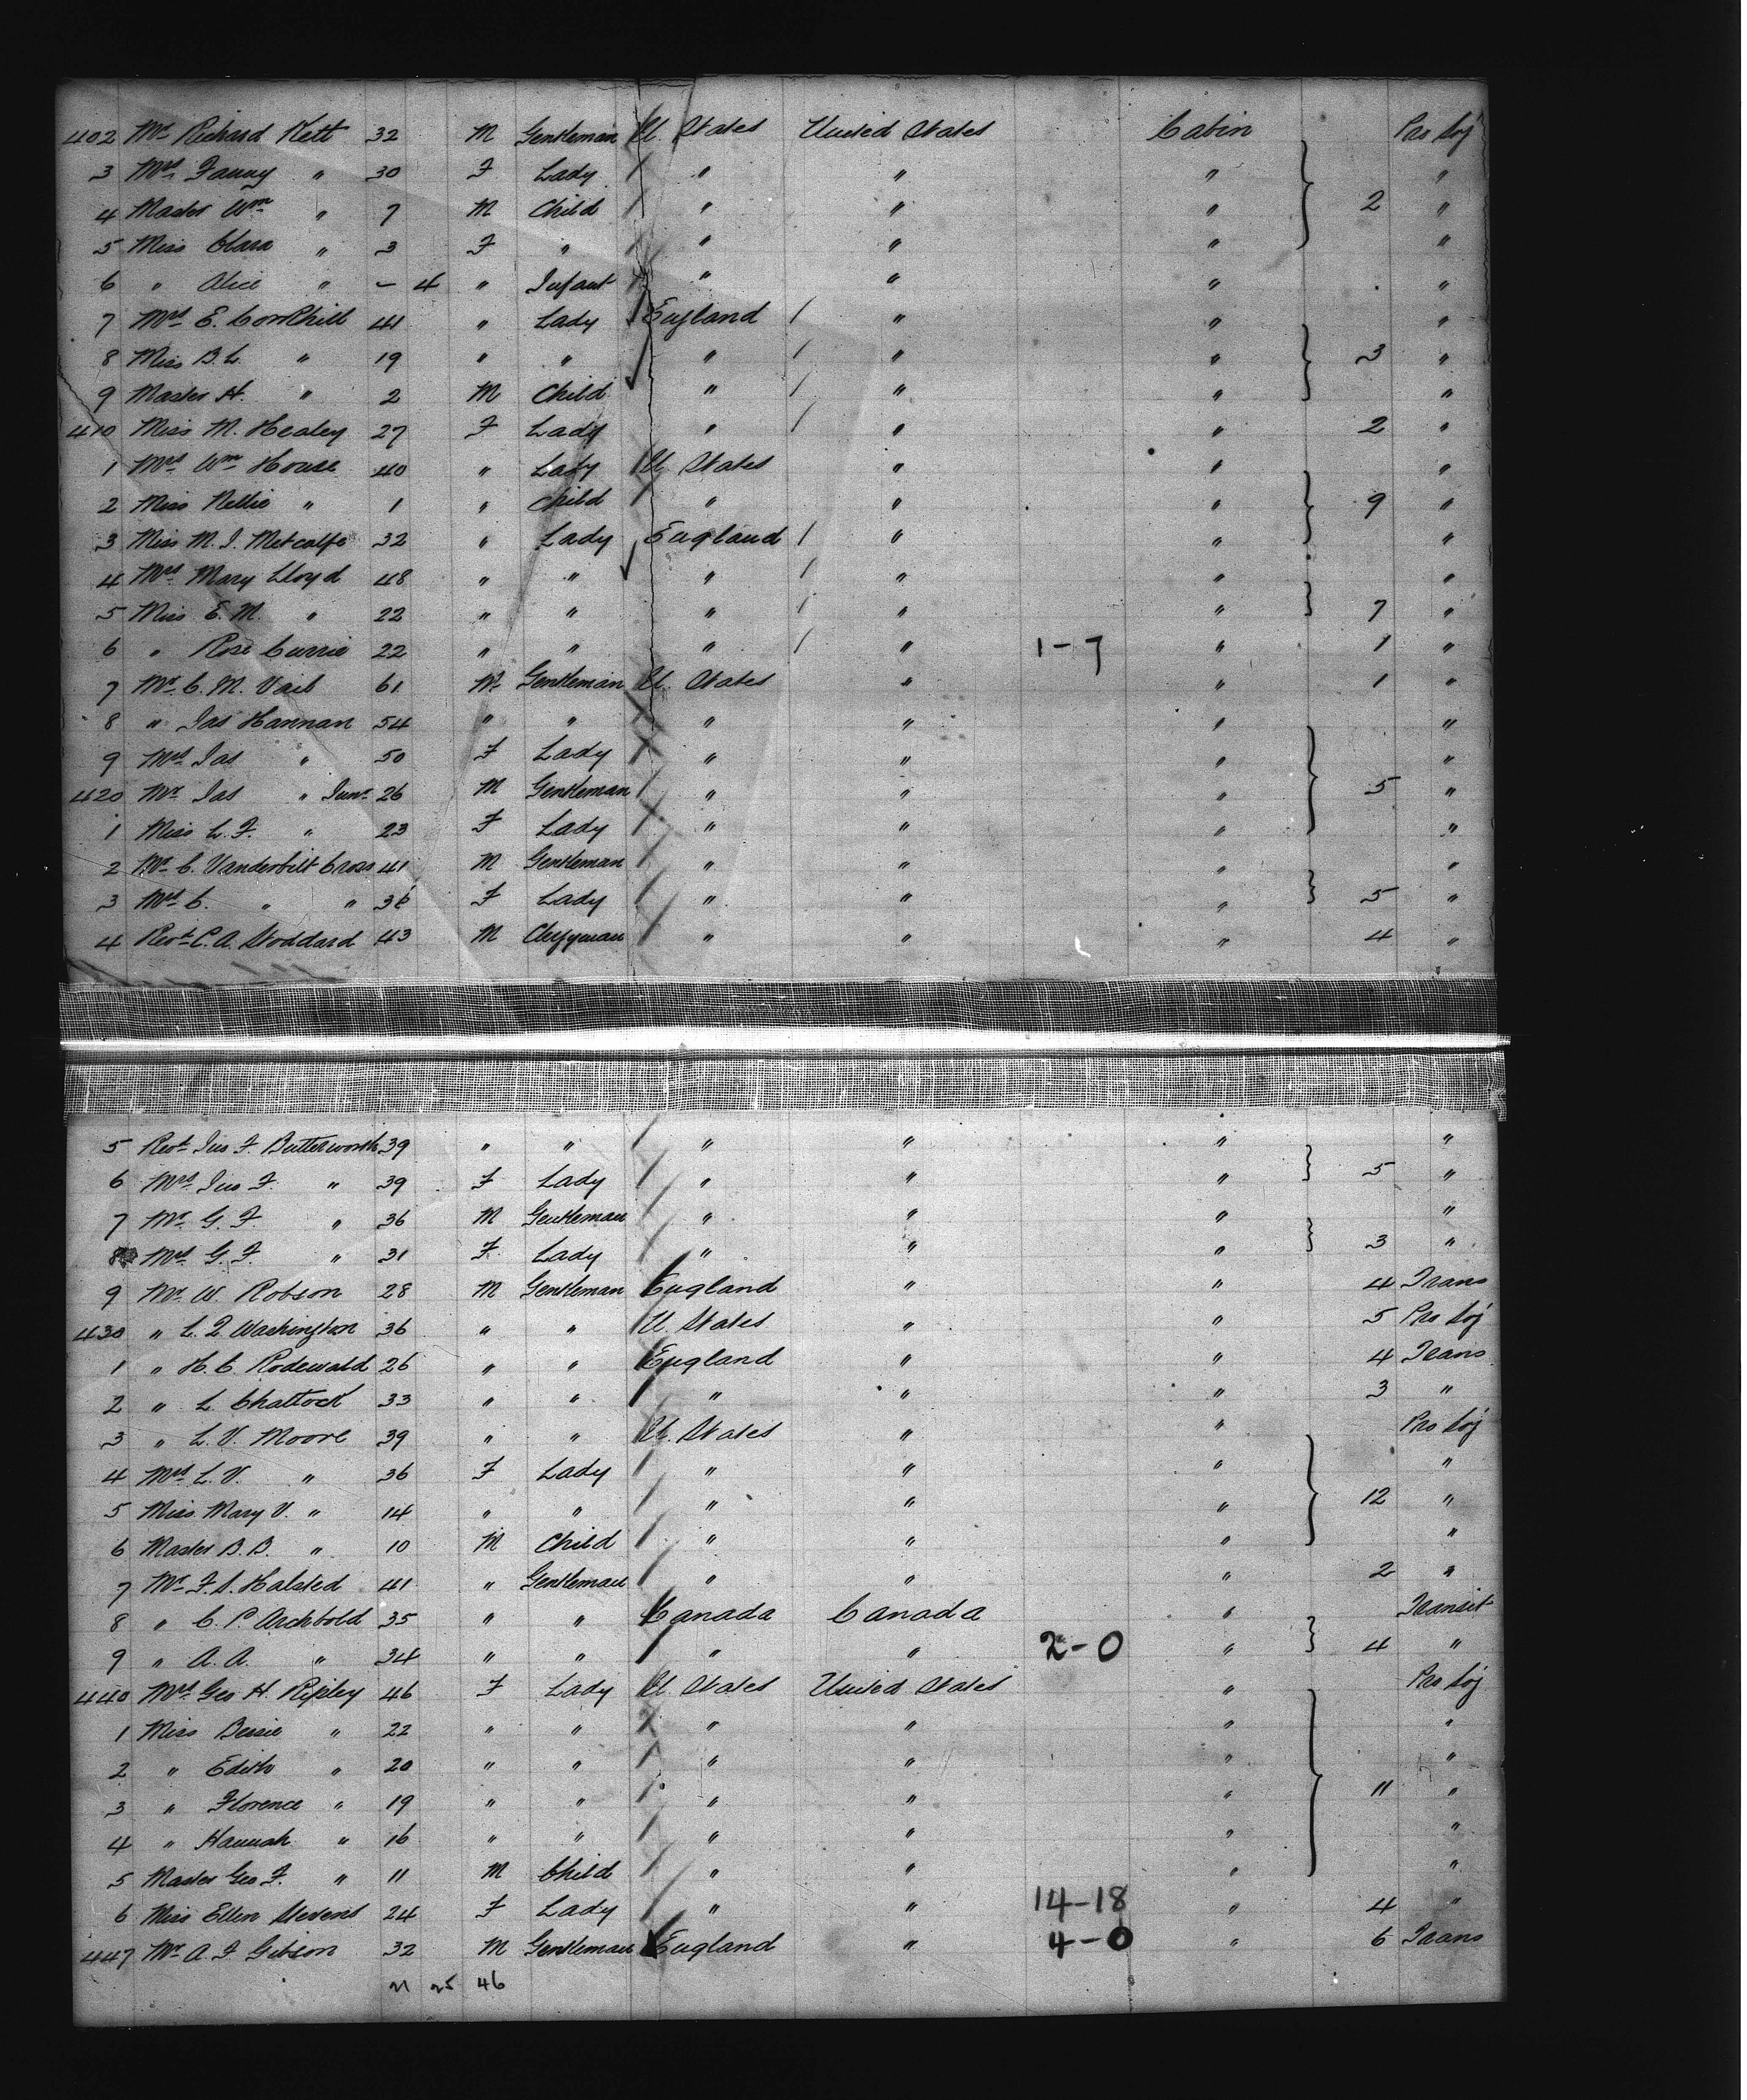 402 Mr Richard Kett 32 M Gentleman U. States United States Cabin Pro Soj
3 Mrs Fanny " 30 F Lady " " " "
4 Master Wm " 7 M Child " " " 2 "
5 Miss Clara " 3 F " " " " "
6 " Alice " – 4 " Infant " " " "
7 Mrs E. Cornhill 41 " Lady England " " "
8 Miss B. L. " 19 " " " " " 3 "
9 Master H. " 2 M Child " " " "
410 Miss M. Healey 27 F Lady " " " 2 "
1 Mrs Wm House 40 " Lady U. States " " "
2 Miss Nellie " 1 " Child " " " 9 "
3 Miss M. I. Metcalfe 32 " Lady England " " "
4 Mrs Mary Lloyd 48 " " " " " "
5 Miss E. M. " 22 " " " " " 7 "
6 " Rose Currie 22 " " " " 1-7 " 1 "
7 Mr C. M. Vail 61 M Gentleman U. States " " 1 "
8 " Jas Hannan 54 " " " " " "
9 Mrs Jas " 50 F Lady " " " "
420 Mr Jas " Junr 26 M Gentleman " " " 5 "
1 Miss L. F. " 23 F Lady " " " "
2 Mr C. Vanderbilt Cross 41 M Gentleman " " " "
3 Mrs C. " " 36 F Lady " " " 5 "
4 Revt C. A. Stoddard 43 M Clergyman " " " 4 "
5 Revt Jno F. Butterworth 39 " " " " " "
6 Mrs Jno F. " 39 F Lady " " " 5 "
7 Mr G. F. " 36 M Gentleman " " " "
8 Mrs G. F. " 31 F Lady " " " 3 "
9 Mr W. Robson 28 M Gentleman England " " 4 Trans
430 " L. Q. Washington 36 " " U. States " " 5 Pro Soj
1 " H. C. Rodewald 26 " " England " " 4 Trans
2 " L. Chattock 33 " " " " " 3 "
3 " L. V. Moore 39 " " U. States " " Pro Soj
4 Mrs L. V. " 36 F Lady " " " "
5 Miss Mary V. " 14 " " " " " 12 "
6 Master B. B. " 10 M Child " " " "
7 Mr F. S. Halsted 41 " Gentleman " " " 2 "
8 " C. P. Archbold 35 " " Canada Canada " Transit
9 " A. A. " 34 " " " " 2-0 " 4 "
440 Mrs Geo H. Ripley 46 F Lady U States United States " Pro Soj
1 Miss Bessie " 22 " " " " " "
2 " Edith " 20 " " " " " "
3 " Florence " 19 " " " " " 11 "
4 " Hannah " 16 " " " " " "
5 Master Geo F. " 11 M Child " " " "
6 Miss Ellen Stevens 24 F Lady " " 14-18 " 4 "
447 Mr A. F. Gibson 32 M Gentleman England " 4-0 " 6 Trans
21 25 46